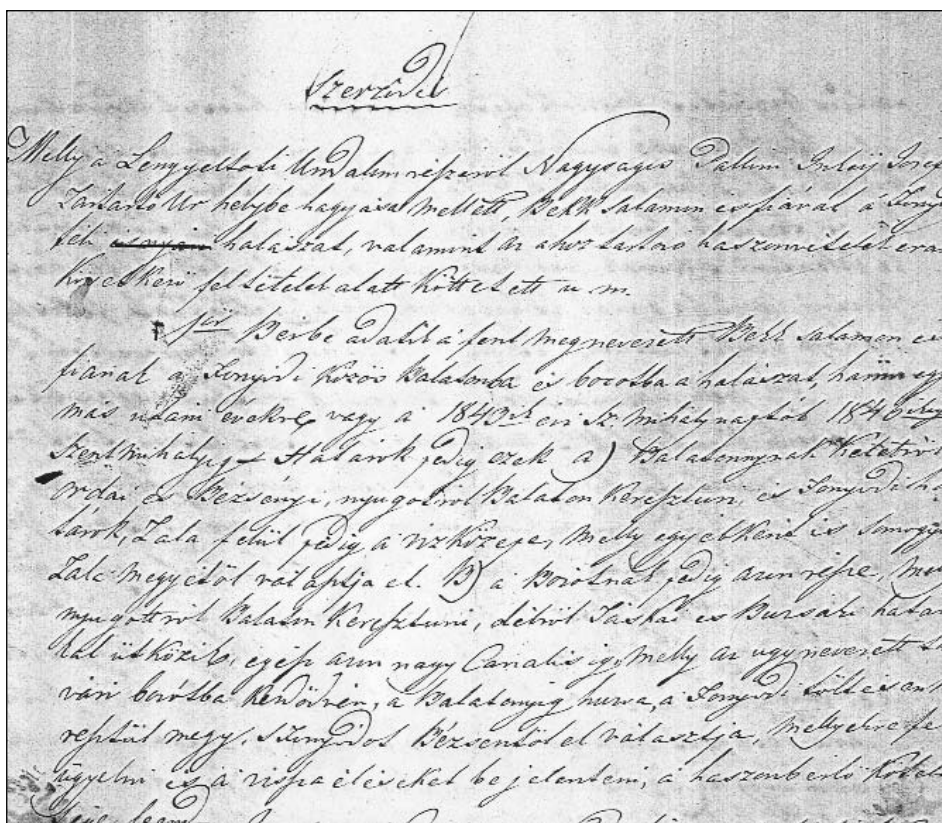 Szerződés
Melly a Lengyeltóti Uradalom részéről Nagyságos Pallini Inkeÿ
Zártartó Ur helybe hagyása mellett, Bekk Salamon és fiával a
féli halászat, valamint az ahoz tartozó haszonvételek
következő feltételek alatt köttetett u. m.
1ször Bérbe adatik a fent megnevezett Bekk Salamon és
fiának a Fonyódi közös Balatonba és bozótba a halászat, három
más utáni évekre, vagy a 1843ik évi Sz. Mihály naptól 1846
Szentmihályig – Határok pedig ezek a) Balatonnynak Keletről
ordai és Bézsenyi, nyugotról Balaton Keresztúri, és Fonyódi
tárok, Zala felül pedig a vizközepe, melly egyébként is
Zala megyétől választja el. B) a Bozótnak pedig azon része,
nyugottról Balaton Keresztúri, délről Táskai és Buzsáki
kal ütközik, egész azon nagy Canalisig, melly az ugy nevezett
vári bozótba kezdődvén, a Balatonyig huzva, a Fonyódi töltésen
resztül megy, s Fonyódot Bézsentől el választja, mellyekre
ügyelni és a visszaéléseket bejelenteni, a haszonbérlő